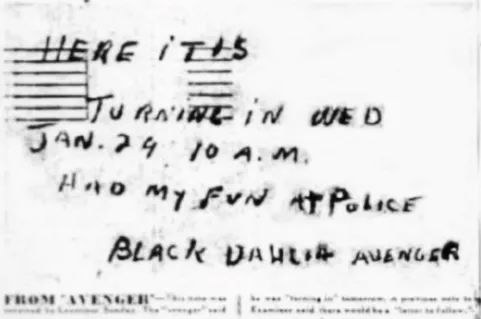 HERE iT IS
TURNING iN WED
JAN. 29 10 A.M.
HAD MY FUN AT POLICE
BLACK DAHLIA AVENGER
FROM "AVENGER"—This note was
received by Examiner Sunday. The "avenger" said
he was "turning in" tomorrow. A previous note to
Examiner said there would be a "letter to follow."